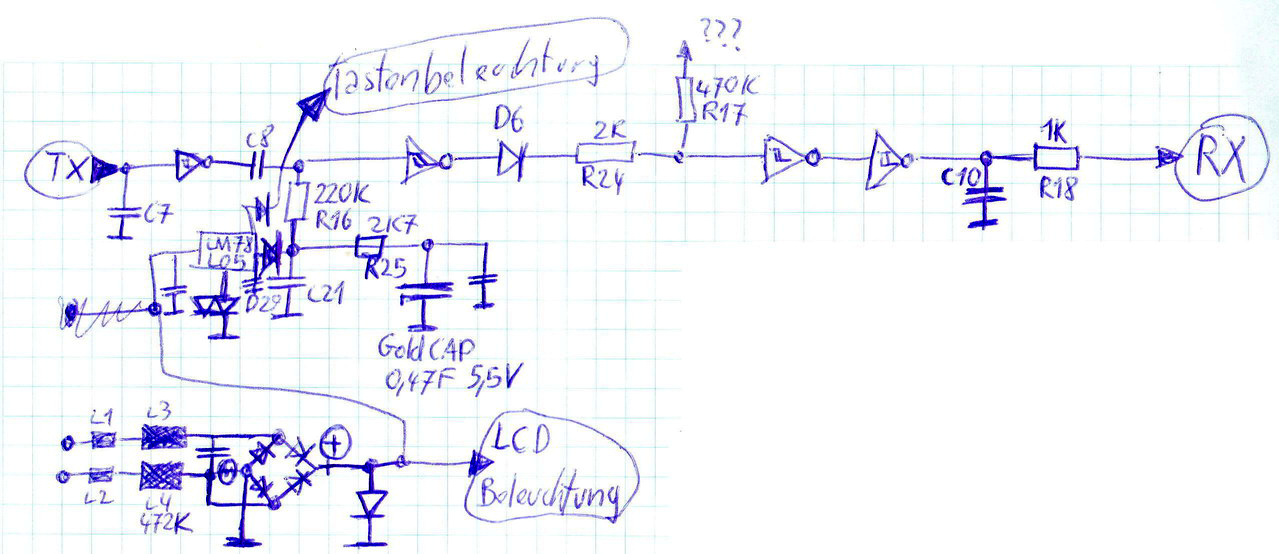 ???
Tastenbeleuchtung
470K
R17
D6
C8
2K
R24
1K
R18
TX
RX
C10
C7
220K
R16
LM78
L05
2K7
R25
D29
C21
Gold CAP
0,47F 5,5V
L1
L3
+
LCD
Beleuchtung
L2
L4
472K